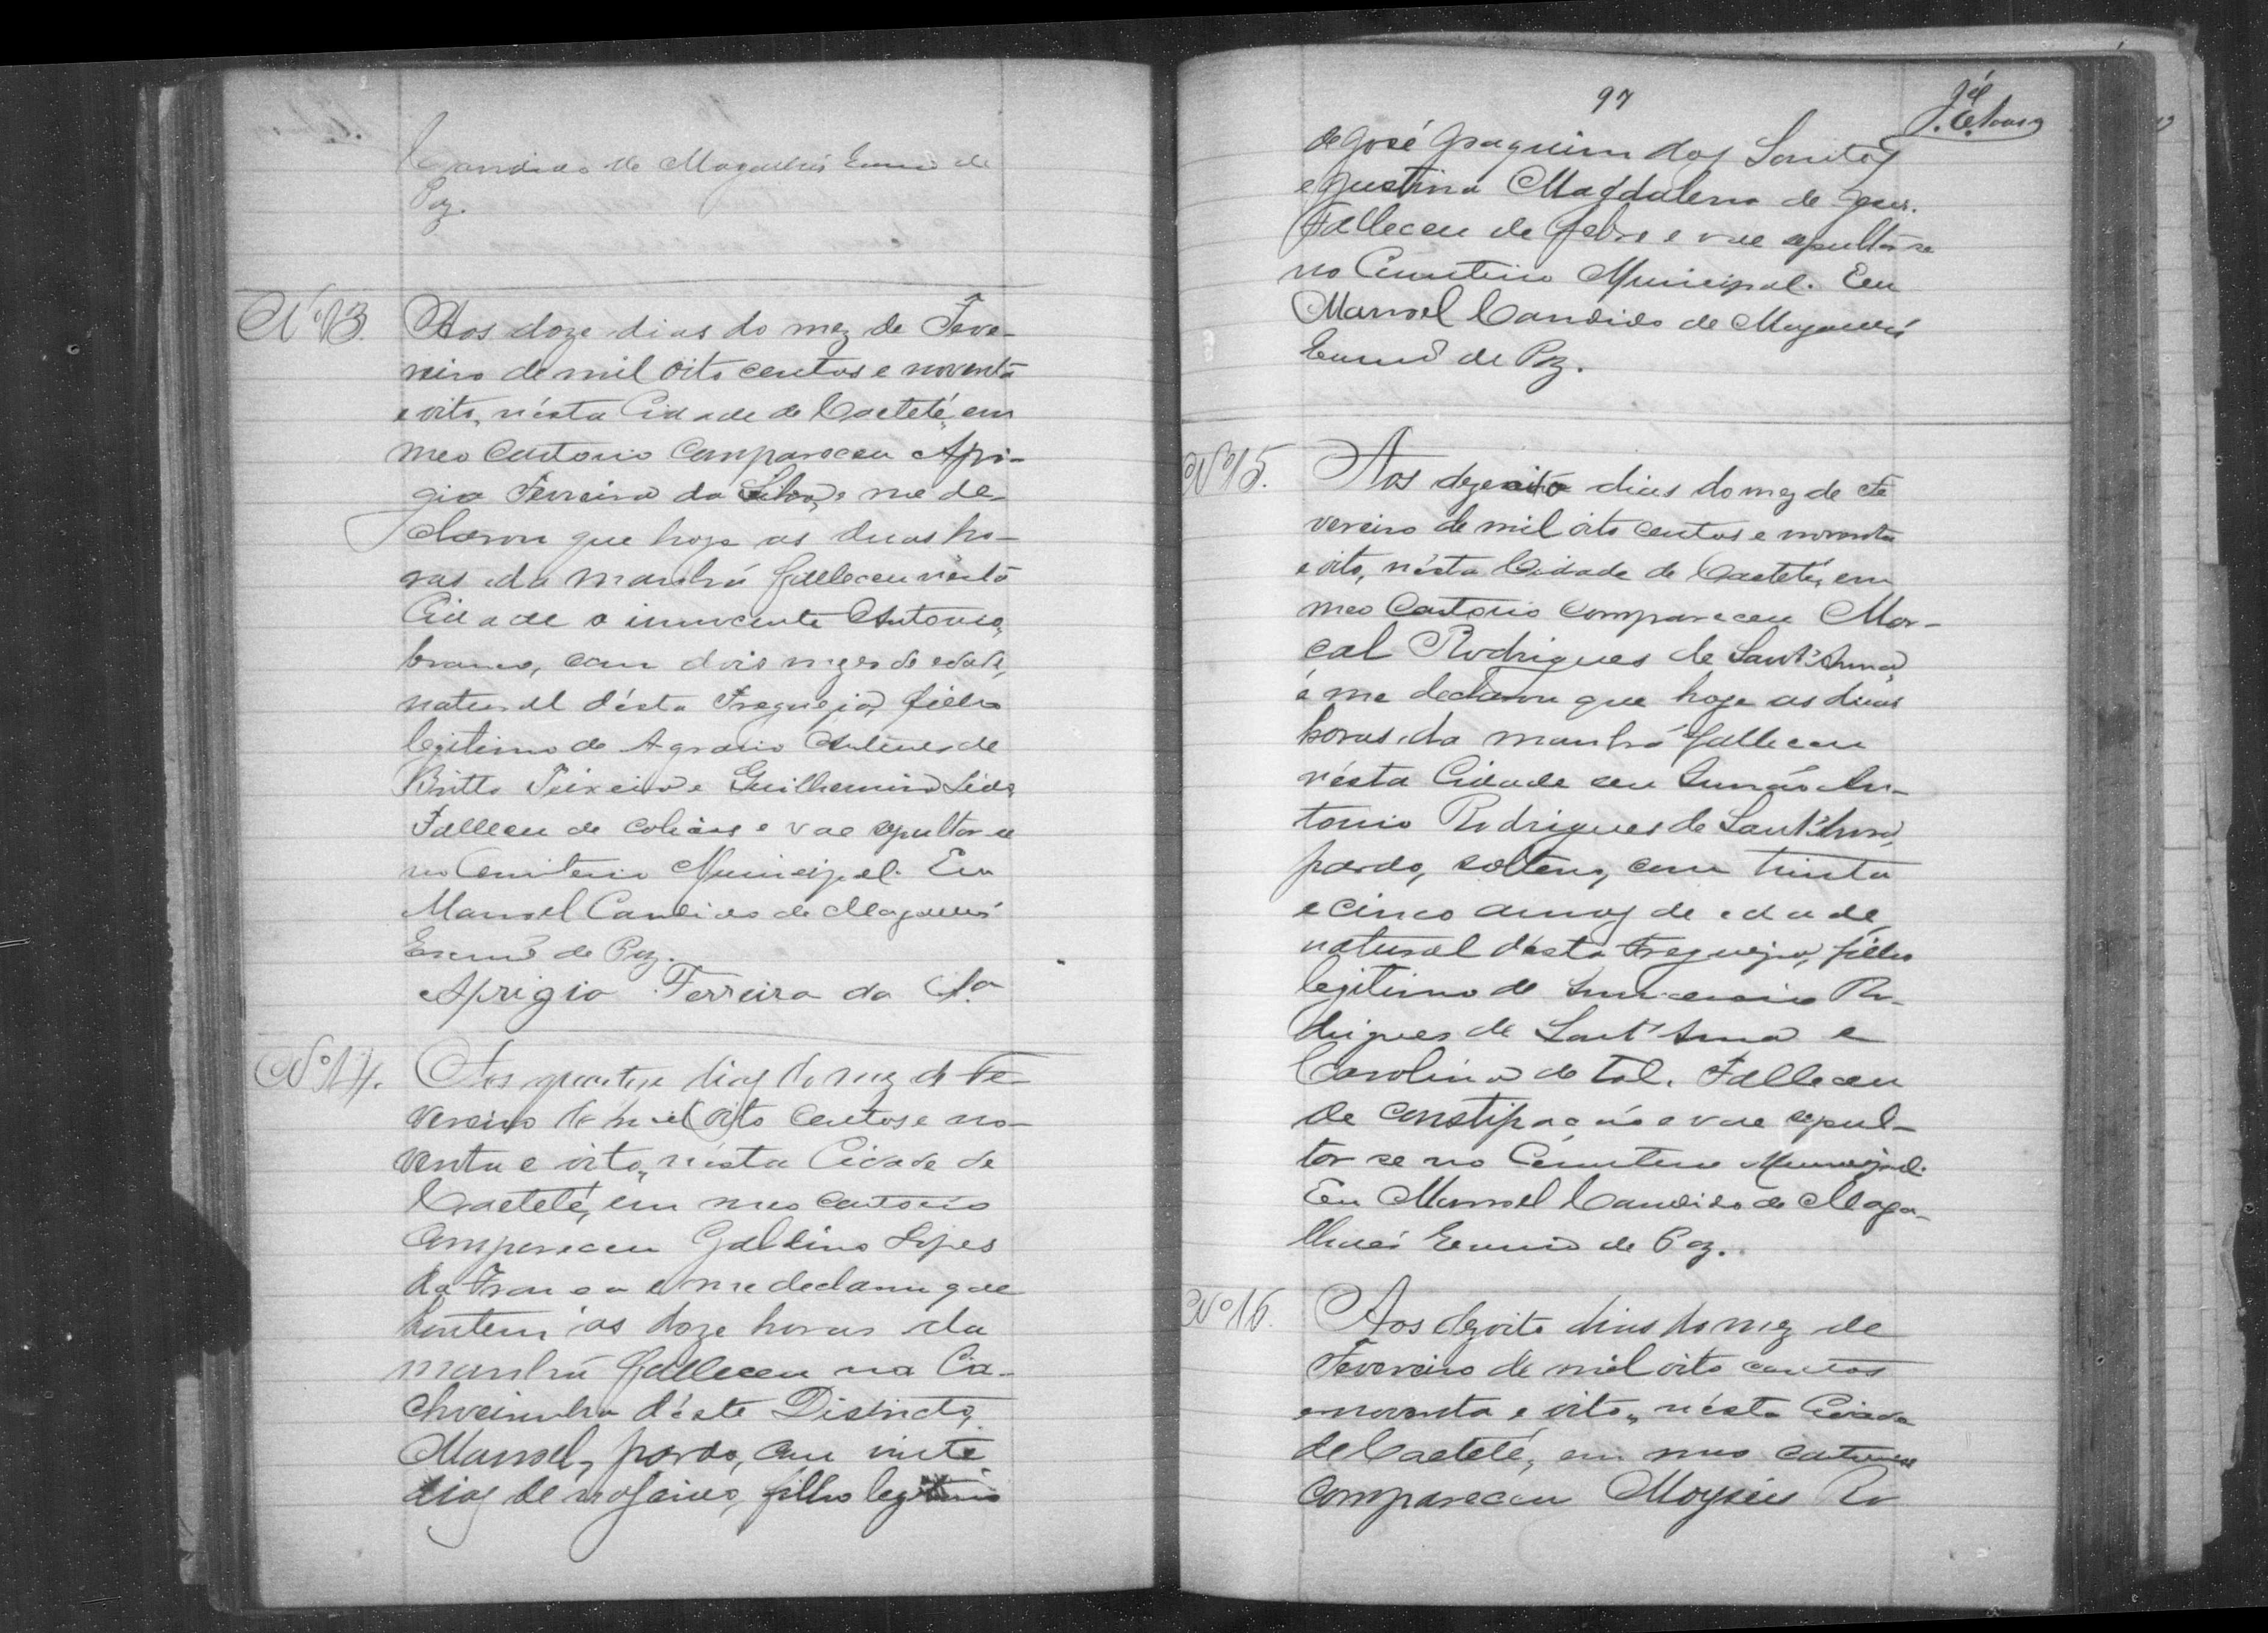 Candido de Magalhães Escrivão de
Paz.
Nº 13. Aos doze dias do mez de Feve-
reiro de mil oito centos e noventa
e oito, nésta Cidade de Caeteté, em
meo Cartorio compareceu Apri-
gio Ferreira da Silva, e me de-
clarou que hoje as duas ho-
ras da manhã falleceu nésta
Cidade o innocente Antonio,
branco, com dois mezes de edade,
natural désta Freguezia, filho
legitimo de Agrario Antunes de
Britto Teixeira e Guilhermina
Falleceu de colicas e vae sepultar-se
no Cemiterio Municipal. Eu
Manoel Candido de Magalhães
Escrmº de Paz.
Aprigio Ferreira da Sª
Nº 14. Aos quatorze dias do mez de Fe-
vereiro de mil oito centos e no-
venta e oito, nésta Cidade de
Caeteté, em meo cartorio
compareceu Galdino Lopes
da França e me declarou que
hontem ás doze horas da
manhã falleceu na Ca-
choeirinha déste Districto,
Manoel, pardo, com vinte
dias de nascido, filho legitimo
97
de José Joaquim dos Santos
e Justina Magdalena de Jesus.
Falleceu de febre e vae sepultar-se
no Cemiterio Municipal. Eu
Manoel Candido de Magalhães
Escrmº de Paz.
Nº 15. Aos dezeoito dias do mez de Fe
vereiro de mil oito centos e noventa
e oito, nésta Cidade de Caeteté, em
meo Cartorio compareceu Mar-
cal Rodrigues de Sant'Anna,
e me declarou que hoje as duas
horas da manhã falleceu
nésta Cidade seu Irmão An-
tonio Rodrigues de Sant'Anna,
pardo, solteiro, com trinta
e cinco annos de edade,
natural désta Freguezia, filho
legitimo de Innocencio Ro-
drigues de Sant'Anna e
Carolina de tal. Falleceu
de constipação e vae sepul-
tar se no Cemiterio Municipal.
Eu Manoel Candido de Maga-
lhães Escrmº de Paz.
Nº 16. Aos dezoito dias do mez de
Fevereiro de mil oito centos
e noventa e oito, nésta Cidade
de Caeteté, em meo cartorio
compareceu Moyses Ro